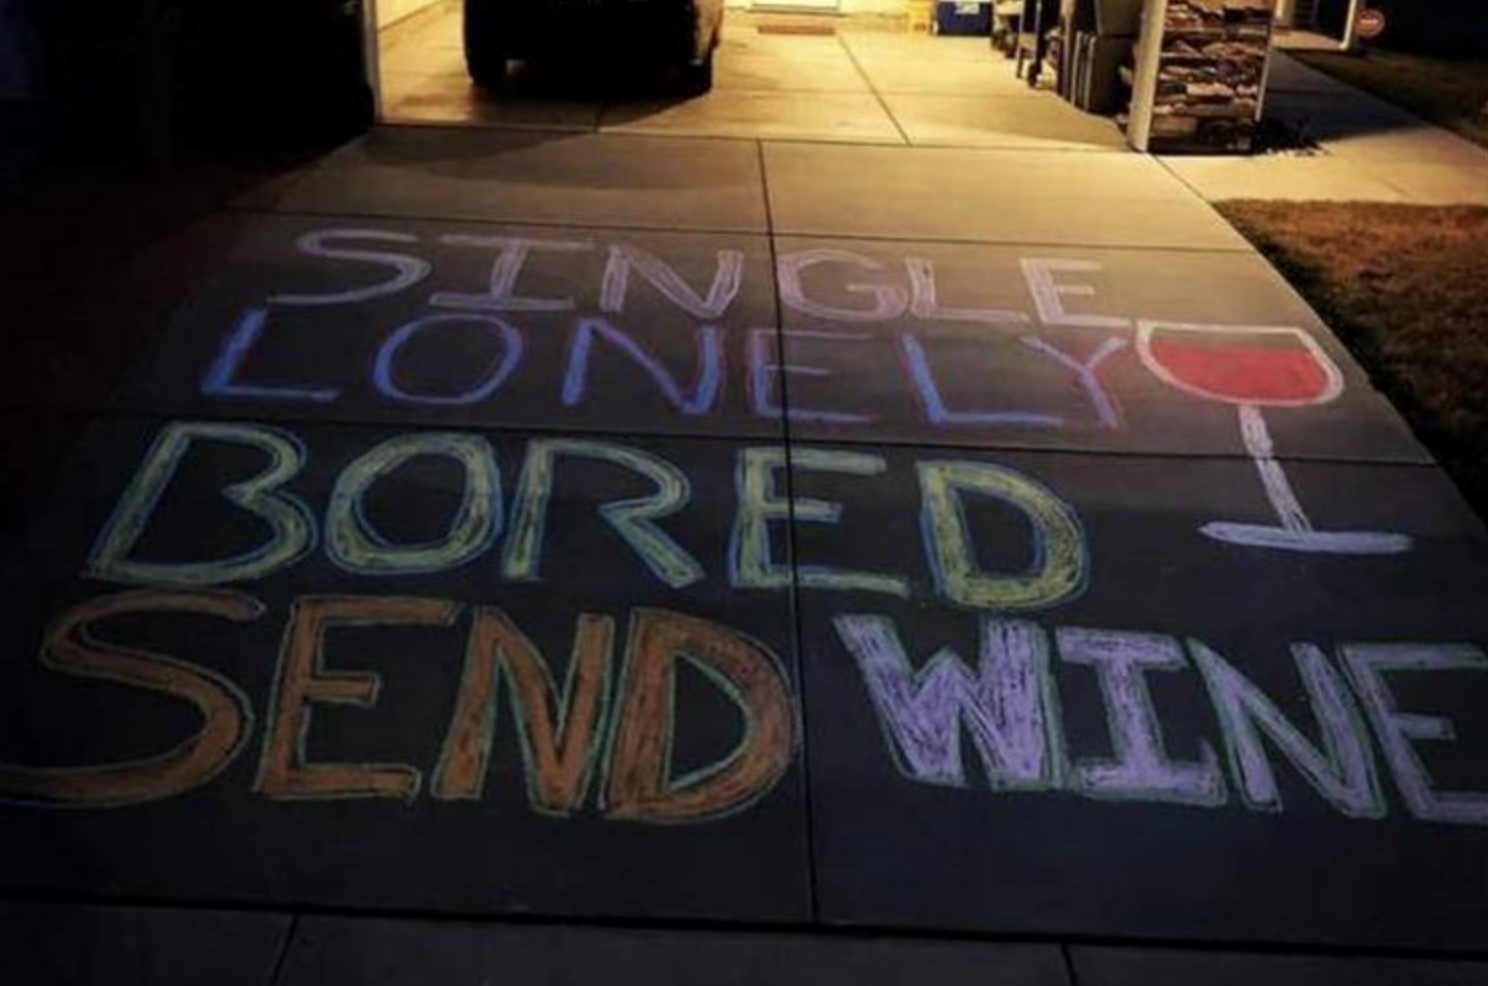 SINGLE
LONELY
BORED
SEND WINE